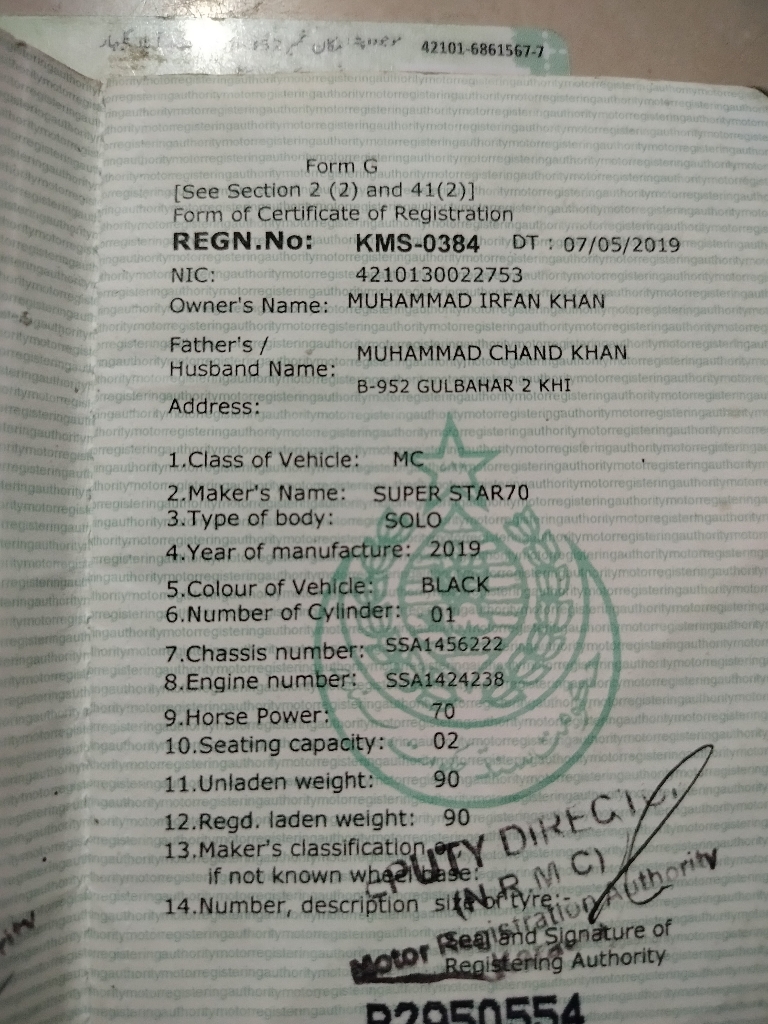 42101-6861567-7
Form G
[See Section 2 (2) and 41(2)]
Form of Certificate of Registration
REGN.No: KMS-0384 DT : 07/05/2019
NIC: 4210130022753
Owner's Name: MUHAMMAD IRFAN KHAN
Father's /
Husband Name: MUHAMMAD CHAND KHAN
B-952 GULBAHAR 2 KHI
Address:
1.Class of Vehicle: MC
2.Maker's Name: SUPER STAR70
3.Type of body: SOLO
4.Year of manufacture: 2019
5.Colour of Vehicle: BLACK
6.Number of Cylinder: 01
7.Chassis number: SSA1456222
8.Engine number: SSA1424238
9.Horse Power: 70
10.Seating capacity: 02
11.Unladen weight: 90
12.Regd. laden weight: 90
13.Maker's classification or
if not known wheel base:
14.Number, description size of tyre:-
(N.R.M C)
Motor Registration Authority
Seal and Signature of
Registering Authority
P2950554